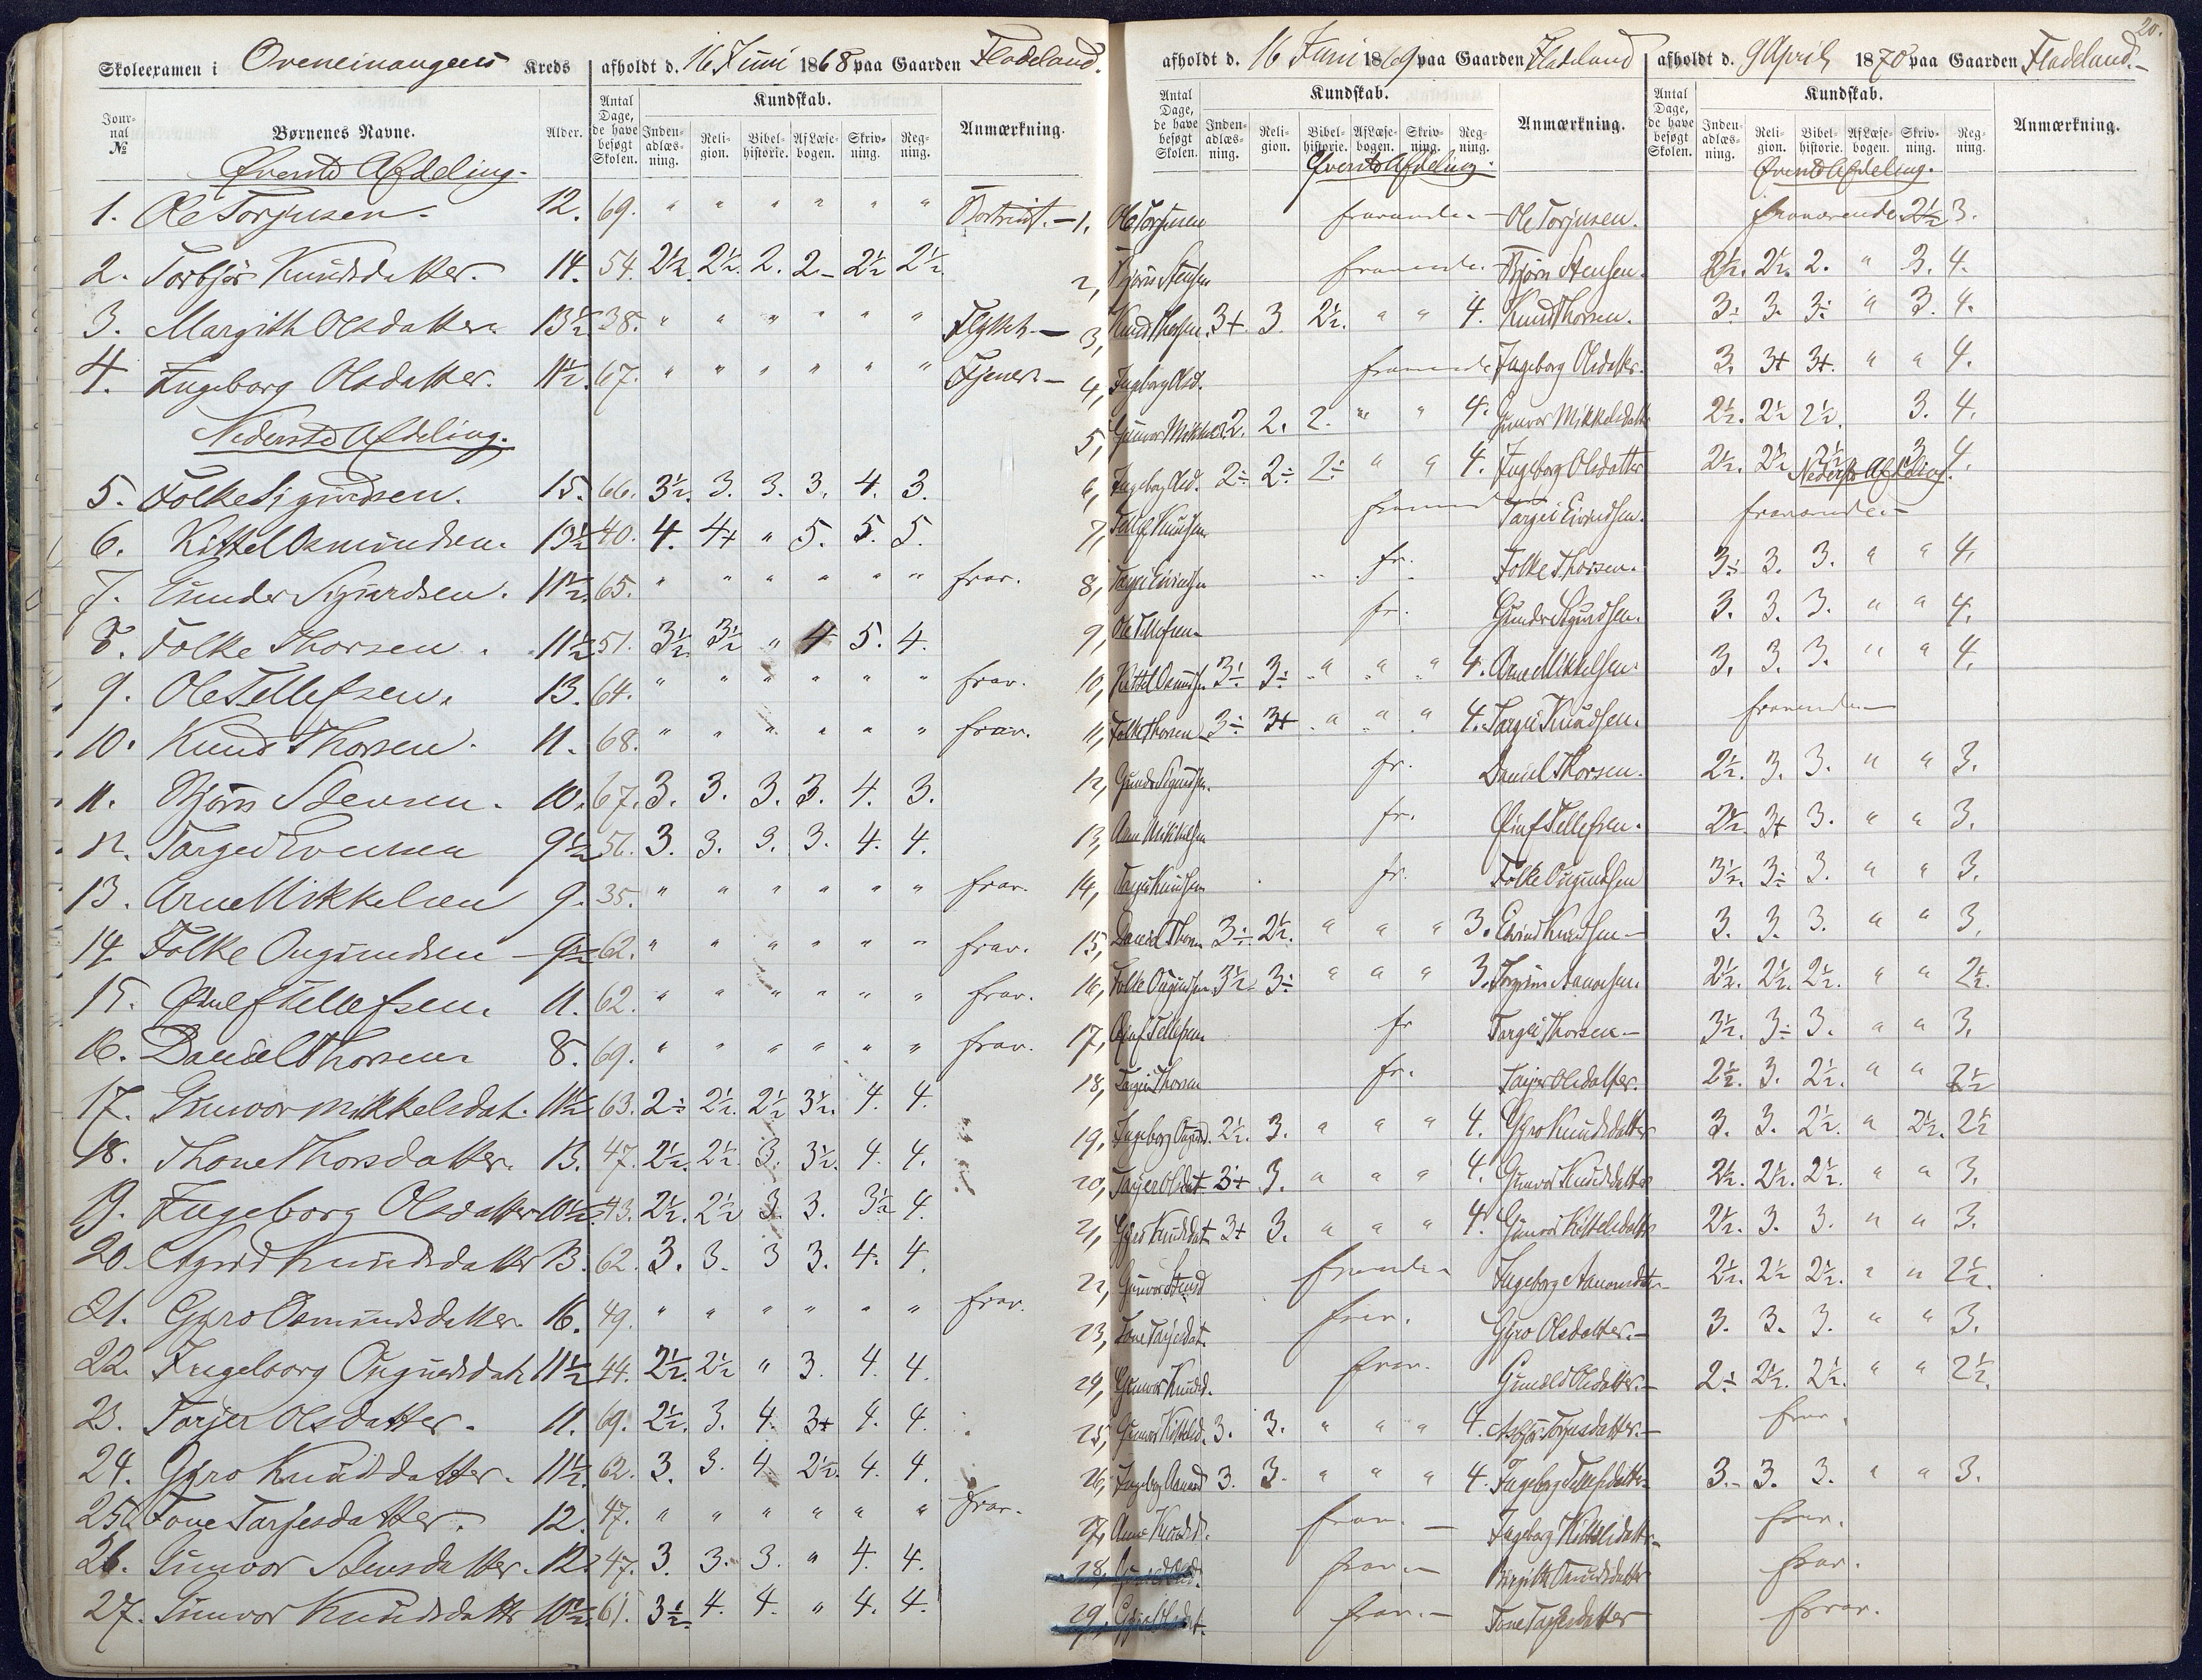 Skoleexamen i Kreds afholdt d. 16 Juni 1868 paa Gaarden Fladeland.
Jour-nal № Børnenes Navne. Alder. Antal Dage, de have besøgt Skolen. Kundskab. Inden-adlæs-ning. Reli-gion. Bibel-historie. Af Læse-bogen. Skriv-ning. Reg-ning. Anmærkning.
Øverste Afdeling.
1. Ole Torjusen. 12. 69. " " " " " "
2. Torbjør Knudsdatter. 14. 54. 2½. 2½. 2. 2. 2½ 2½.
3. Margith Olsdatter 13½ 38. " " " " " " Flyttet.
4. Ingeborg Olsdatter. 11½. 67. " " " " " " Tjener.
Nederste Afdeling.
5. Folke Sigurdsen. 15. 66. 3½. 3. 3. 3. 4. 3.
6. Kittel Osmundsen. 13½ 40. 4. 4+ " 5. 5. 5.
7. Gunder Sigurdsen. 11½. 65. " " " " " " frav.
8. Folke Thorsen. 11½ 51. 3½. 3½ " 4 5. 4.
9. Ole Tellefsen. 13. 64. " " " " " " frav.
10. Knud Thorsen. 11. 68. " " " " " " frav.
11. Bjørn Stensen. 10. 67. 3. 3. 3. 3. 4. 3.
12. Torgei 9½ 56. 3. 3. 3. 3. 4. 4.
13. Arne Mikkelsen 9. 35. " " " " " " frav.
14. Folke Ougundsen 62. " " " " " " frav.
15. Øiulf Tellefsen. 11. 62. " " " " " " frav.
16. Daniel Thorsen. 8. 69. " " " " " " frav.
17. Gunvor Mikkelsdat. 11½ 63. 2÷ 2½. 2½ 3½. 4. 4.
18. Thone Thorsdatter. 13. 47. 2½. 2½. 3. 3½. 4. 4.
19. Ingeborg Olsdatter 10½ 43. 2½. 2½ 3. 3. 3½ 4.
20. Knudsdatter 13. 62. 3. 3. 3 3. 4. 4.
21. Gyro Osmundsdatter 16. 49. " " " " " " frav.
22. Ingeborg Ougundsdat 11½ 44. 2½. 2½ " 3. 4. 4.
23. Torjer Olsdatter. 11. 69. 2½. 3. 4. 3+ 4. 4.
24. Gyro Knudsdatter. 11½. 62. 3. 3. 4. 2½. 4. 4.
25. Tone Tarjesdatter. 12. 47. " " " " " " frav.
26. Gunvor Stensdatter. 12. 47. 3. 3. 3. " 4. 4.
27. Gunvor Knudsdatter 10½ 61. 3½. 4. 4. " 4. 4.
20.
afholdt d. 16 Juni 1869 paa Gaarden Fladeland
Antal Dage, de have besøgt Skolen. Kundskab. Inden-adlæs-ning. Reli-gion. Bibel-historie. Af Læse-bogen. Skriv-ning. Reg-ning. Anmærkning.
Øverste Afdeling.
1, Ole Torjusen
2, Bjørn Stensen
3, Knud Thorsen. 3+. 3. 2½. " " 4.
4, Ingeborg Olsd.
5, Gunvor 2. 2. 2. " " 4.
6, Ingeborg Olsd. 2÷ 2÷ 2÷ " " 4.
7, Tellef Knudsen
8, fr.
9, Ole Tellefsen fr.
10, Kittel Osmundsen 3÷ 3÷ " " " 4.
11, Folke Thorsen 3÷ 3+ " " " 4.
12, Gunder Sigurdsen. fr.
13, Arne Mikkelsen fr.
14, Torgei Knudsen fr.
15, Daniel Thorsen 3÷ 2½. " " " 3.
16, Folke Ougundsen 3½ 3÷ " " " 3.
17, Øiulf Tellefsen fr
18, Torgei Thorsen fr.
19, Ingeborg 2½. 3. " " " 4.
20, Torjer Olsdat 3+ 3. " " " 4.
21, Gyro Knudsdat 3+ 3. " " " 4.
22, Gunvor Stensd
23, Tone Tarjesdat. frav.
24, Gunvor Knudsd. frav.
25, Gunvor Kittelsd. 3. 3. " " " 4.
26, Ingeborg Aanonsd 3. 3. " " " 4.
27, Anne Knudsd. frav.
28, frav.
29, frav.
afholdt d. 9 April 1870 paa Gaarden Fladeland.
Antal Dage, de have besøgt Skolen. Kundskab. Inden-adlæs-ning. Reli-gion. Bibel-historie. Af Læse-bogen. Skriv-ning. Reg-ning. Anmærkning.
Øverste Afdeling.
Ole Torjusen. fraværende 2½ 3.
Bjørn Stensen. 2½. 2½. 2. " 3. 4.
Knud Thorsen. 3÷ 3. 3÷ " 3. 4.
Ingeborg Olsdatter. 3. 3+ 3+. " " 4.
Gunvor Mikkelsdatter 2½. 2½ 2½. 3. 4.
Ingeborg Olsdatter 2½. 2½ 2½ 3. 4.
Nederste Afdeling.
Torgei Eivindsen.
Folke Thorsen. 3÷ 3. 3. " " 4.
Gunder Sigurdsen. 3. 3. 3. " " 4.
Arne Mikkelsen. 3. 3. 3. " " 4.
Torgei Knudsen.
Daniel Thorsen. 2½. 3. 3. " " 3.
Øiulf Tellefsen. 2½. 3+ 3. " " 3.
Folke Ougundsen 3½. 3÷ 3. " " 3.
Eivind Knudsen 3. 3. 3. " " 3.
Aanonsen. 2½. 2½. 2½. " " 2½.
Torgei Thorsen 3½. 3÷ 3. " " 3.
Torjer Olsdatter. 2½. 3. 2½. " " 2½
Gyro Knudsdatter 3. 3. 2½. " 2½. 2½
Gunvor Knudsdatter 2½. 2½. 2½. " " 3.
Gunvor Kittelsdatter 2½. 3. 3. " " 3.
Ingeborg Aanonsdat. 2½. 2½ 2½. " " 2½.
Gyro Olsdatter. 3. 3. 3. " " 3.
Gunild Olsdatter. 2÷ 2½. 2½. " " 2½.
Torjusdatter. frav.
Ingeborg Tellefsdatter 3. 3. 3. " " 3.
Ingeborg Kittelsdatter frav.
frav.
Tone Tarjesdatter frav.